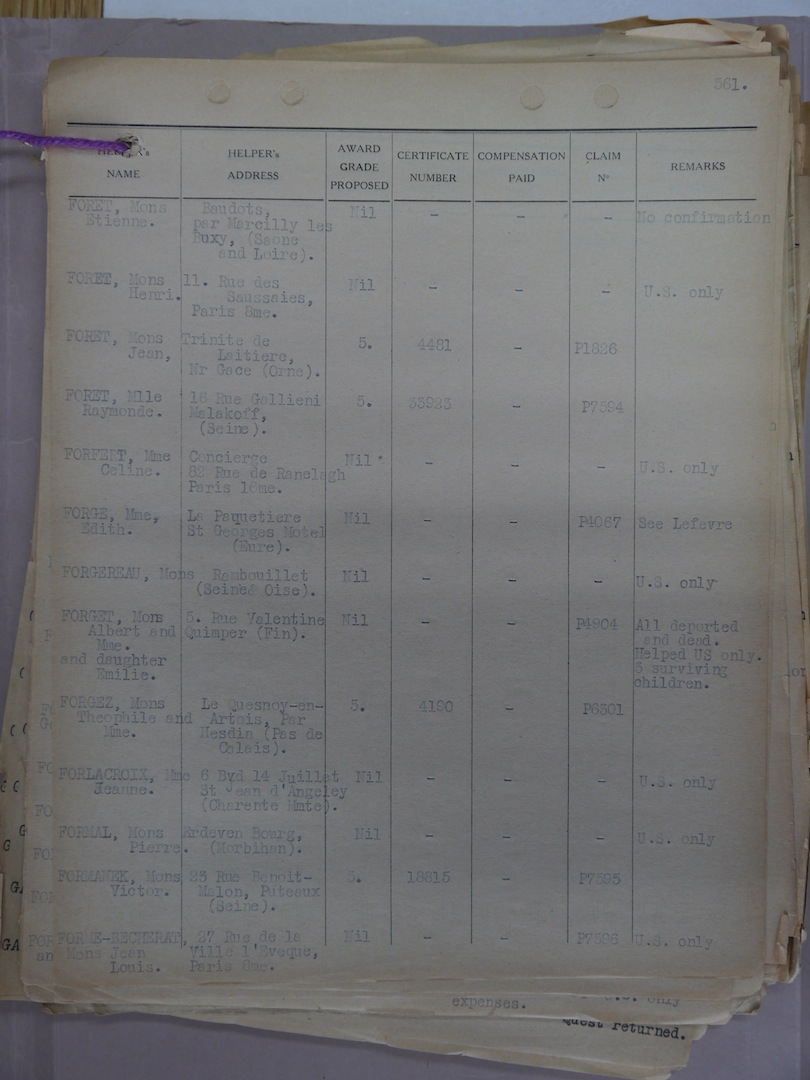 561.
HELPER's NAME
HELPER's ADDRESS
AWARD GRADE PROPOSED
CERTIFICATE NUMBER
COMPENSATION PAID
CLAIM Nº
REMARKS
FORET, Mons Baudots, Nil - - - No confirmation
Etienne. par Marcilly les
Buxy, (Saone
and Loire).
FORET, Mons 11. Rue des Nil - - - U.S. only
Henri. Saussaies,
Paris 8me.
FORET, Mons Trinite de 5. 4481 - P1826
Jean, Laitiere,
Nr Gace (Orne).
FORET, Mlle 18 Rue Gallieni 5. 35923 - P7594
Raymonde. Malakoff,
(Seine).
FORFERT, Mme Concierge Nil - - - U.S. only
Celine. 82 Rue de Ranelagh
Paris 16me.
FORGE, Mme, La Paquetiere Nil - - P4067 See Lefevre
Edith. St Georges Motel
(Eure).
FORGEREAU, Mons Rambouillet Nil - - - U.S. only
(Seine& Oise).
FORGET, Mons 5. Rue Valentine Nil - - P4904 All deported
Albert and Quimper (Fin). and dead.
Mme. Helped US only.
and daughter 5 surviving
Emilie. children.
FORGEZ, Mons Le Quesnoy-en- 5. 4190 - P6301
Theophile and Artois, Par
Mme. Hesdin (Pas de
Calais).
FORLACROIX, Mme 6 Bvd 14 Juillet Nil - - - U.S. only
Jeanne. St Jean d'Angeley
(Charente Mmte).
FORMAL, Mons Erdeven Bourg, Nil - - - U.S. only
Pierre. (Morbihan).
FORMANEK, Mons 23 Rue Benoit- 5. 18815 - P7595
Victor. Malon, Puteaux
(Seine).
FORME-BECHERAT, 37 Rue de la Nil - - P7596 U.S. only
Mons Jean Ville l'Eveque,
Louis. Paris 8me.
expenses.
U.S. only
quest returned.